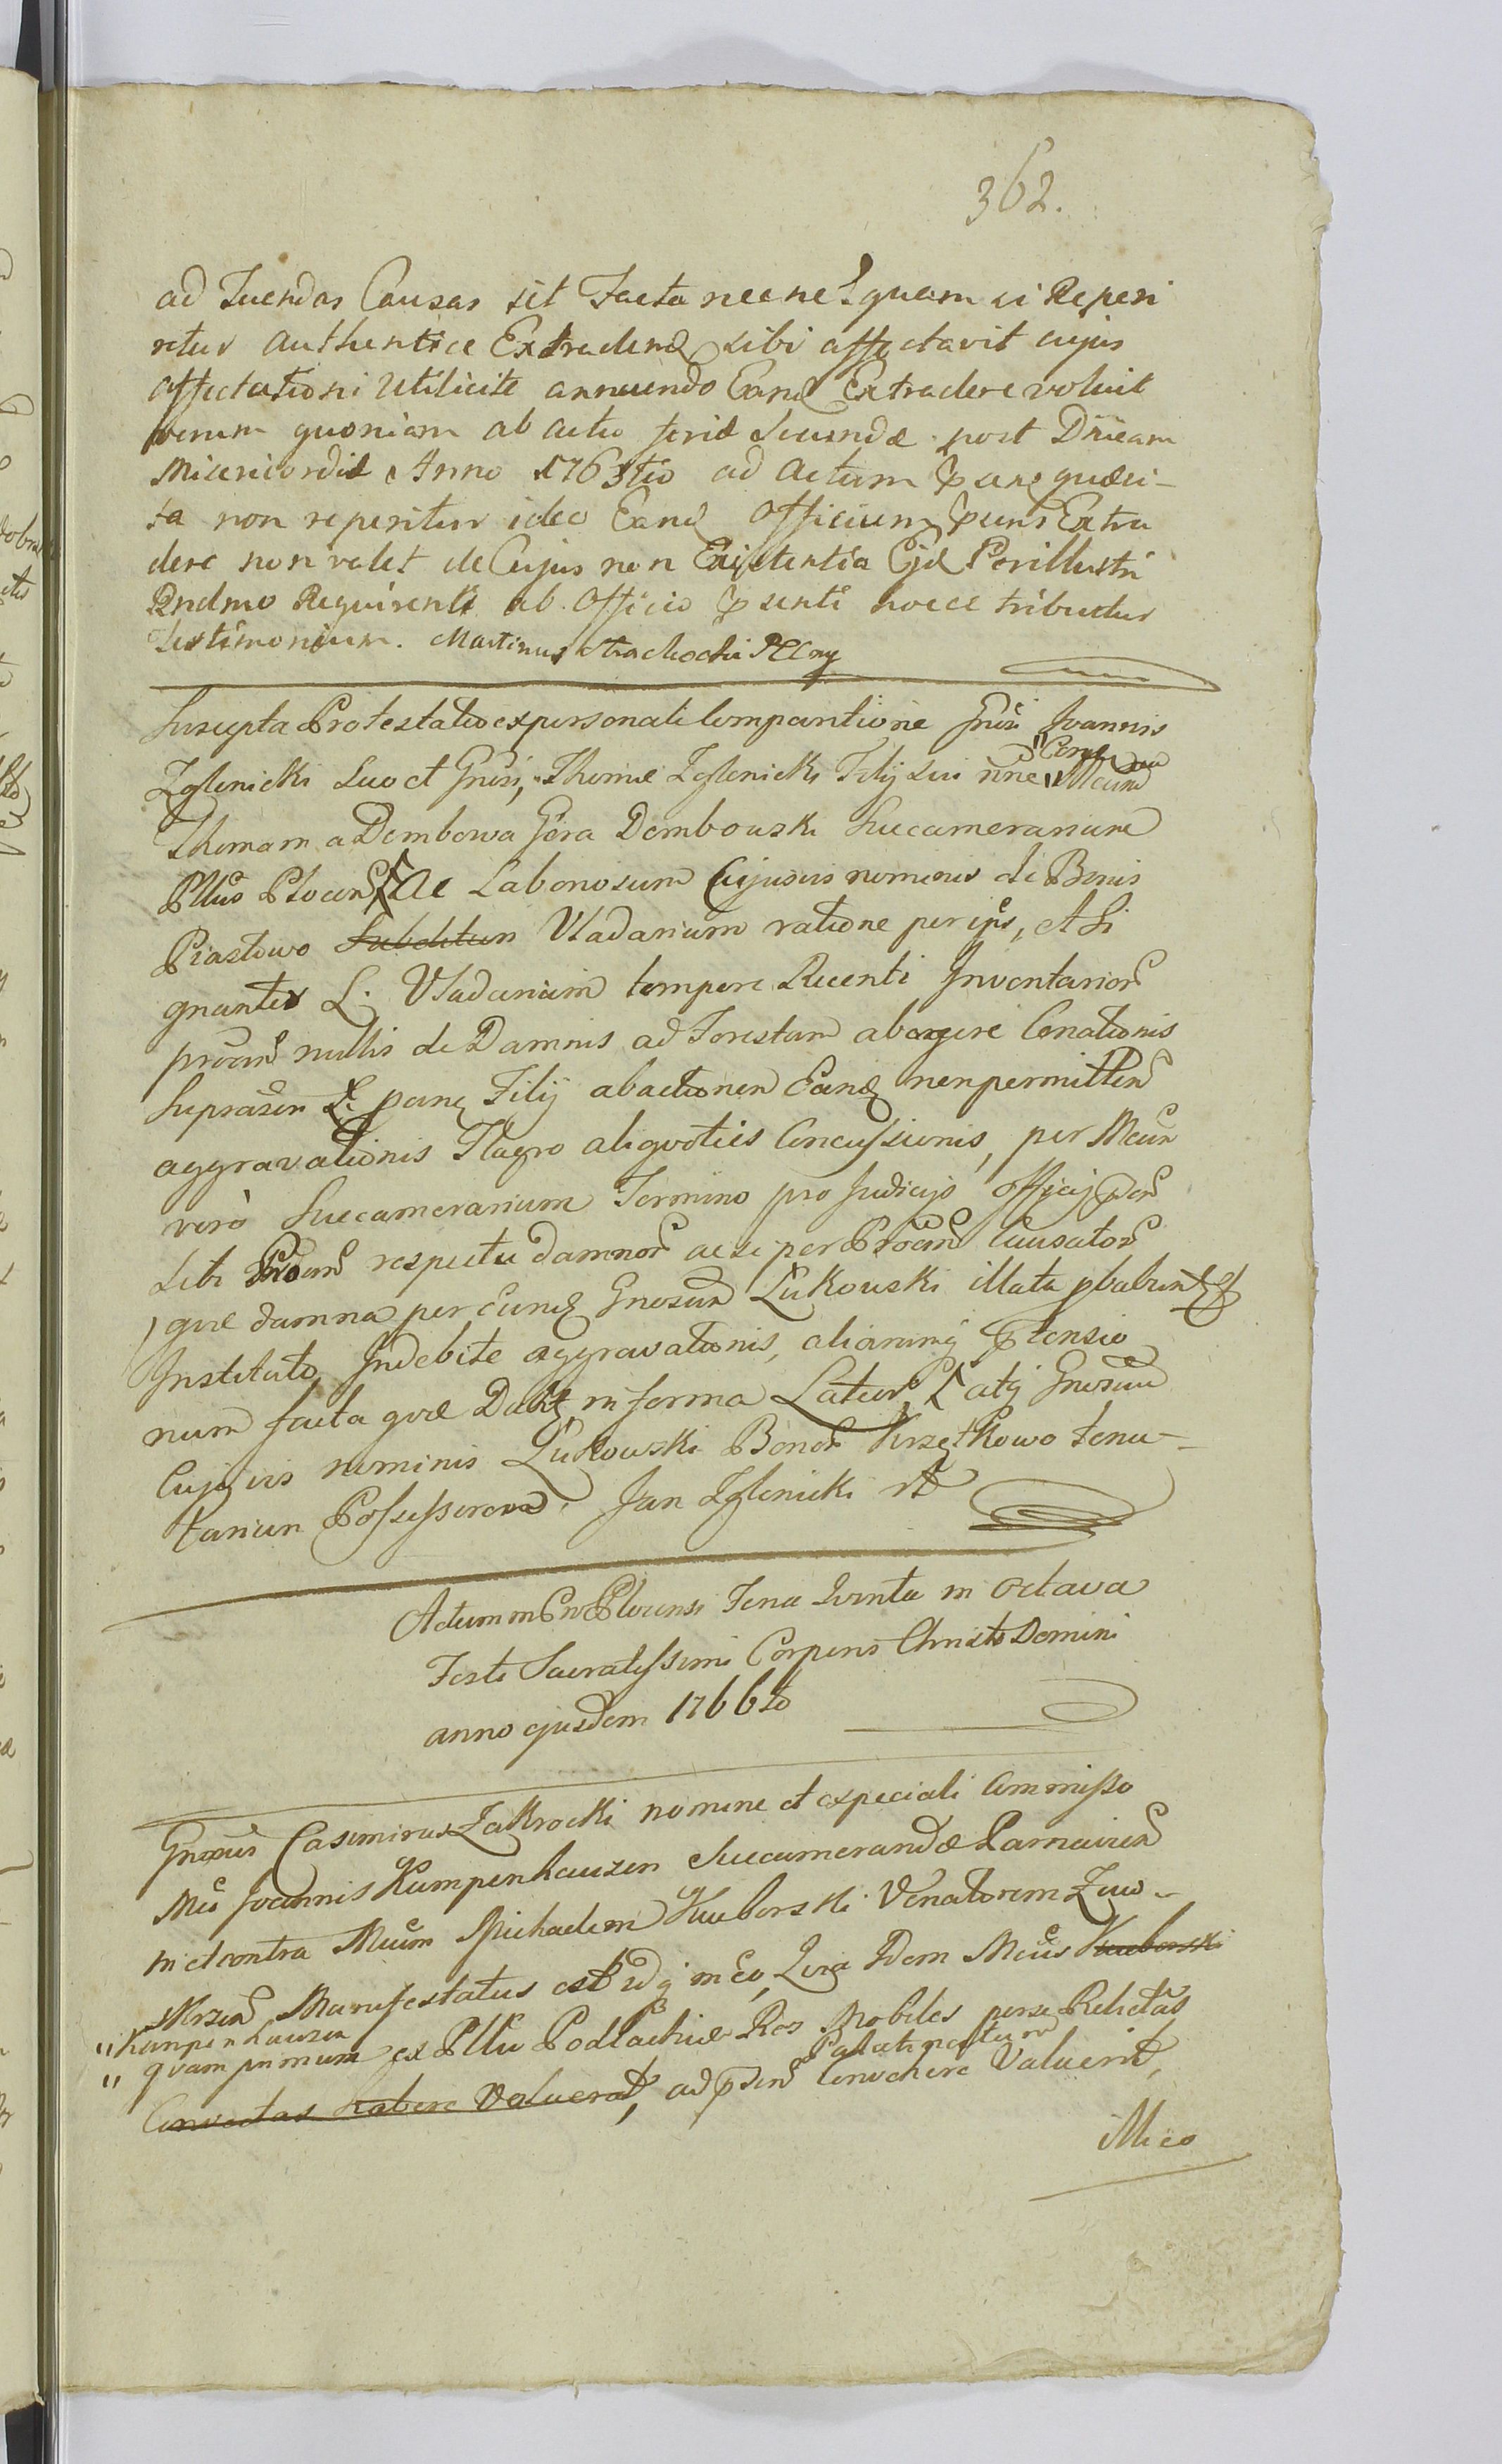 362.
ad Tuendas Causas sit Facta nec ne? quam si Reperi
retur authentice Extradend sibi affectavit cujus
affectationi Utilicite annuendo Eand Extradere voluit
verum quoniam ab actu feriæ Secundæ post Dnicam
Misericordiæ Anno 1763tio ad actum pns quæsi-
ta non reperitur ideo Eand Officium pns Extra
dere non valet de Cujus non Existentia Ejd Perillustri
Rndmo Requirenti ab Officio psenti hocce tribuitur
Testimonium. Martinus
Suscepta Protestatio ex personali Comparitione Gnsi Joannis
Zglenicki Suo et Gnsi, Thomæ Zglenicki Filij sui nne Mcum
Thomam a Dembowa Góra Dembowski Succamerarium
Pltus Plocen ac Laboriosum Cujusvis nominis de Bonis
Piastowo Subditum Vladarium ratione per ips, et Si
gnanter L. Vladarium tempore Recenti Inventarior
nullis de Damnis ad Forestam abagere Conationis
Suprascr Filij abactionem Eand non permitten
aggravationis Flagro aliquoties Concussionis, per Mcum
vero Succamerarium Termino pro Judicijs officij
sibi respectu damnor ac si per causator
quæ damna per Eund Gnosum Łukowski illata
Instituto Indebite aggravationis, aliarumq ptensio
num facta quæ Dabt in forma Latior, atq Gnosum
Cujusvis nominis Łukowski Bonor Krzętkowo tenu-
tarium Possessorem. Jan Zglenicki
Actum in Plocensi Feria Quinta in Octava
Festi Sacratissimi Corporis Christi Domini
anno ejusdem 1766to
Gnosus Casimirus Zakrocki nomine et ex speciali Commisso
Mci Joannis Kampenhauzen Succamerandæ Parnavien
in et contra Mcum Michaelem Kuuborski Venatorem Zaw-
Mrsen Manifestatus est idq in eo, Quia Idem Mcus Kuuborski
"Kanpenhauzen
" quam primum ex Pltu Podlachiæ Res Mobiles per se Relictas
Palatinatum
Convectas habere Valuerat, ad psen Convehere Valuerit,
Illico